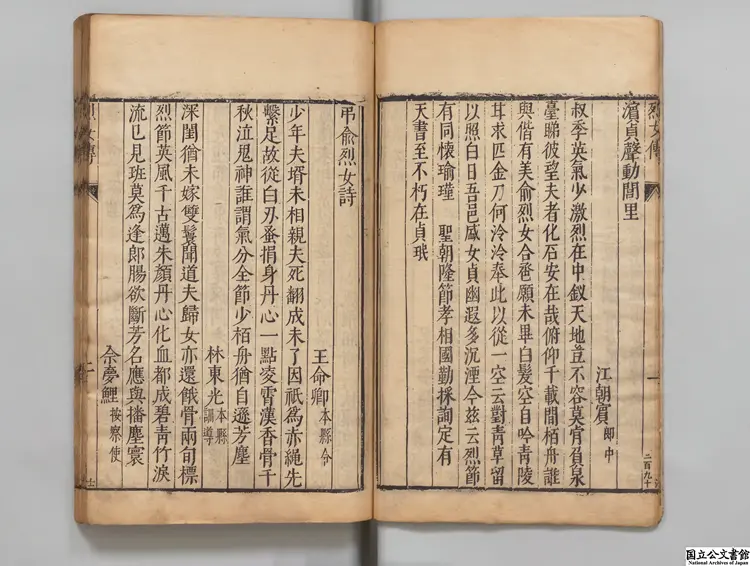 烈女傳
一
二百九十
濵貞聲動閭里
江朝賓郎中
叔季英氣少激烈在中釵天地豈不容莫宵負泉
臺睇彼望夫者化石安在哉俯仰千載間栢舟誰
與偕有美俞烈女合巹願未畢白髮空自吟青陵
耳求匹金刀何泠泠奉此以從一空云對青草留
以照白日吾邑咸女貞幽遐多沉湮今玆云烈節
有同懷瑜瑾 聖朝隆節孝相國勤採詢定有
天書至不朽在貞珉
吊俞烈女詩
王命卿本縣令
少年夫壻未相親夫死翻成未了因祇爲赤繩先
繫足故從白刃蚤捐身丹心一點凌霄漢香骨千
秋泣鬼神誰謂氣分全節少栢舟猶自遜芳塵
林東光本縣訓導
深閨猶未嫁雙鬟聞道夫歸女亦還餓骨兩旬標
烈節英風千古邁朱顏丹心化血都成碧青竹淚
流已見班莫爲逢郎腸欲斷芳名應與播塵寰
余夢鯉按察使
烈女傳
国立公文書館
National Archives of Japan